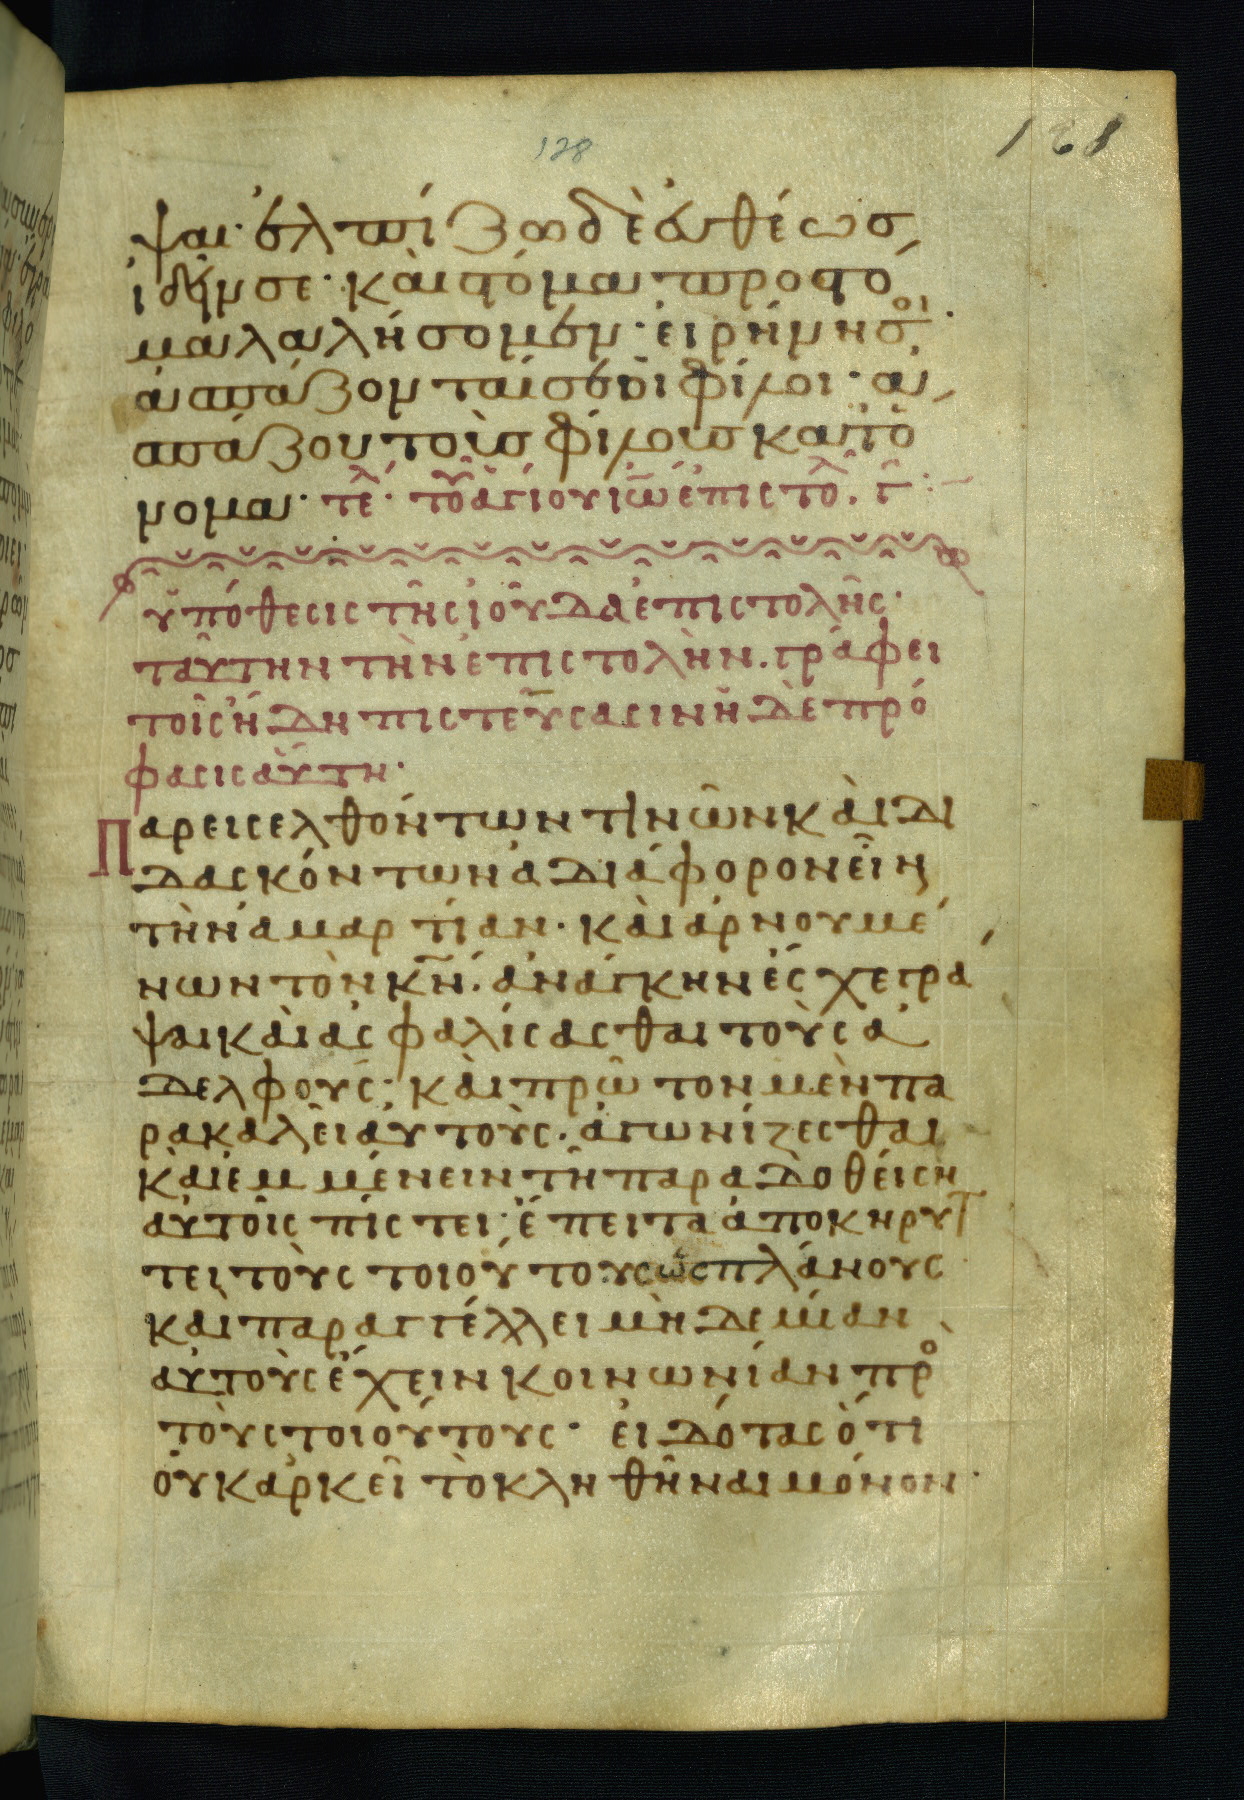 128
ψαι· ἐλπίζω δὲ ἐυθέωσ
ἰδεῖν σε· καὶ στόμα προσ στό
μα λαλήσομεν· ἐιρήνη σοι·
ἀσπάζονταί σε ὁι φίλοι· ἀ
σπάζου τοὺσ φίλουσ κατ ὄ
νομα· τελ· τοῦ ἁγίου ιω ἐπιστολ. γ
ὑπόθεσις τῆς ἰούδα ἐπιστολῆς·
ταύτην τὴν ἐπιστολὴν. γράφει
τοῖς ἤδη πιστεύσασιν ἡ δὲ πρό
φασις αὕτη·
Παρεισελθόντων τινῶν καὶ δι
δασκόντων ἀδιάφορον εἶναι
τὴν ἁμαρτίαν· καὶ ἀρνουμέ
νων τὸν κν̄. ἀνάγκην ἔσχε γρά
ψαι καὶ ἀσφαλίσασθαι τοὺς ἀ
δελφούς· καὶ πρῶτον μὲν πα
ρακαλεῖ ἀυτοὺς· ἀγωνίζεσθαι
καὶ ἐμμένειν τῆ παραδοθείση
ἀυτοῖς πίστει· ἔπειτα ἀποκηρύτ
τει τοὺς τοιούτους ὡς πλάνους
καὶ παραγγέλλει μηδεμίαν
ἀυτοὺς ἔχειν κοινωνίαν πρὸ
τοὺς τοιούτους· ἐιδότας ὅτι
ὀυκ ἀρκεῖ τὸ κληθῆναι μόνον·